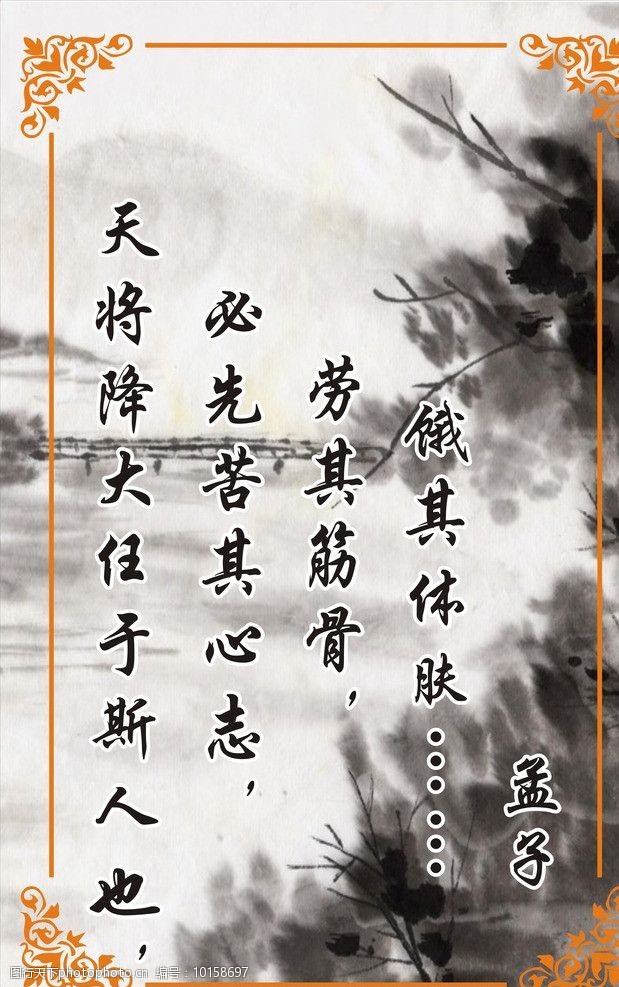 天将降大任于斯人也，
必先苦其心志，
劳其筋骨，
饿其体肤……
孟子
图行天下 photophoto.cn 编号：10158697